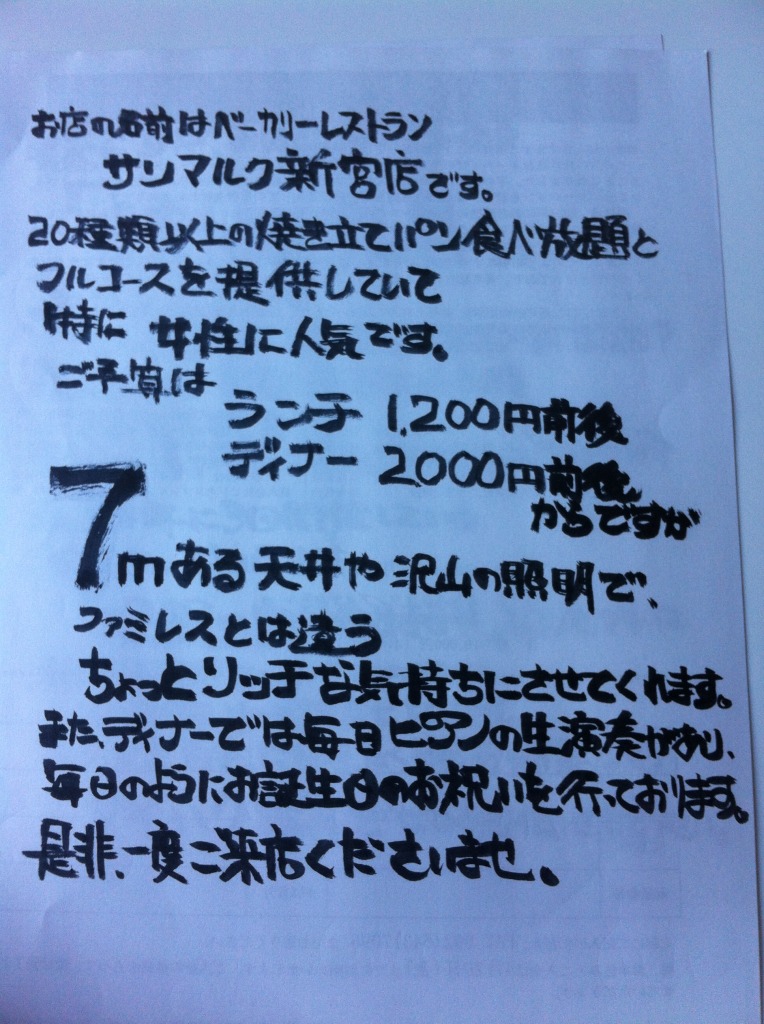 お店の名前はベーカリーレストラン
サンマルク新宮店です。
20種類以上の焼き立てパン食べ放題と
フルコースを提供していて
特に女性に人気です。
ご予算は
ランチ 1,200円前後
ディナー 2000円前後
からですが
7mある天井や沢山の照明で、
ファミレスとは違う
ちょっとリッチな気持ちにさせてくれます。
また、ディナーでは毎日ピアノの生演奏があり、
毎日のようにお誕生日のお祝いを行っております。
是非、一度ご来店くださいませ。